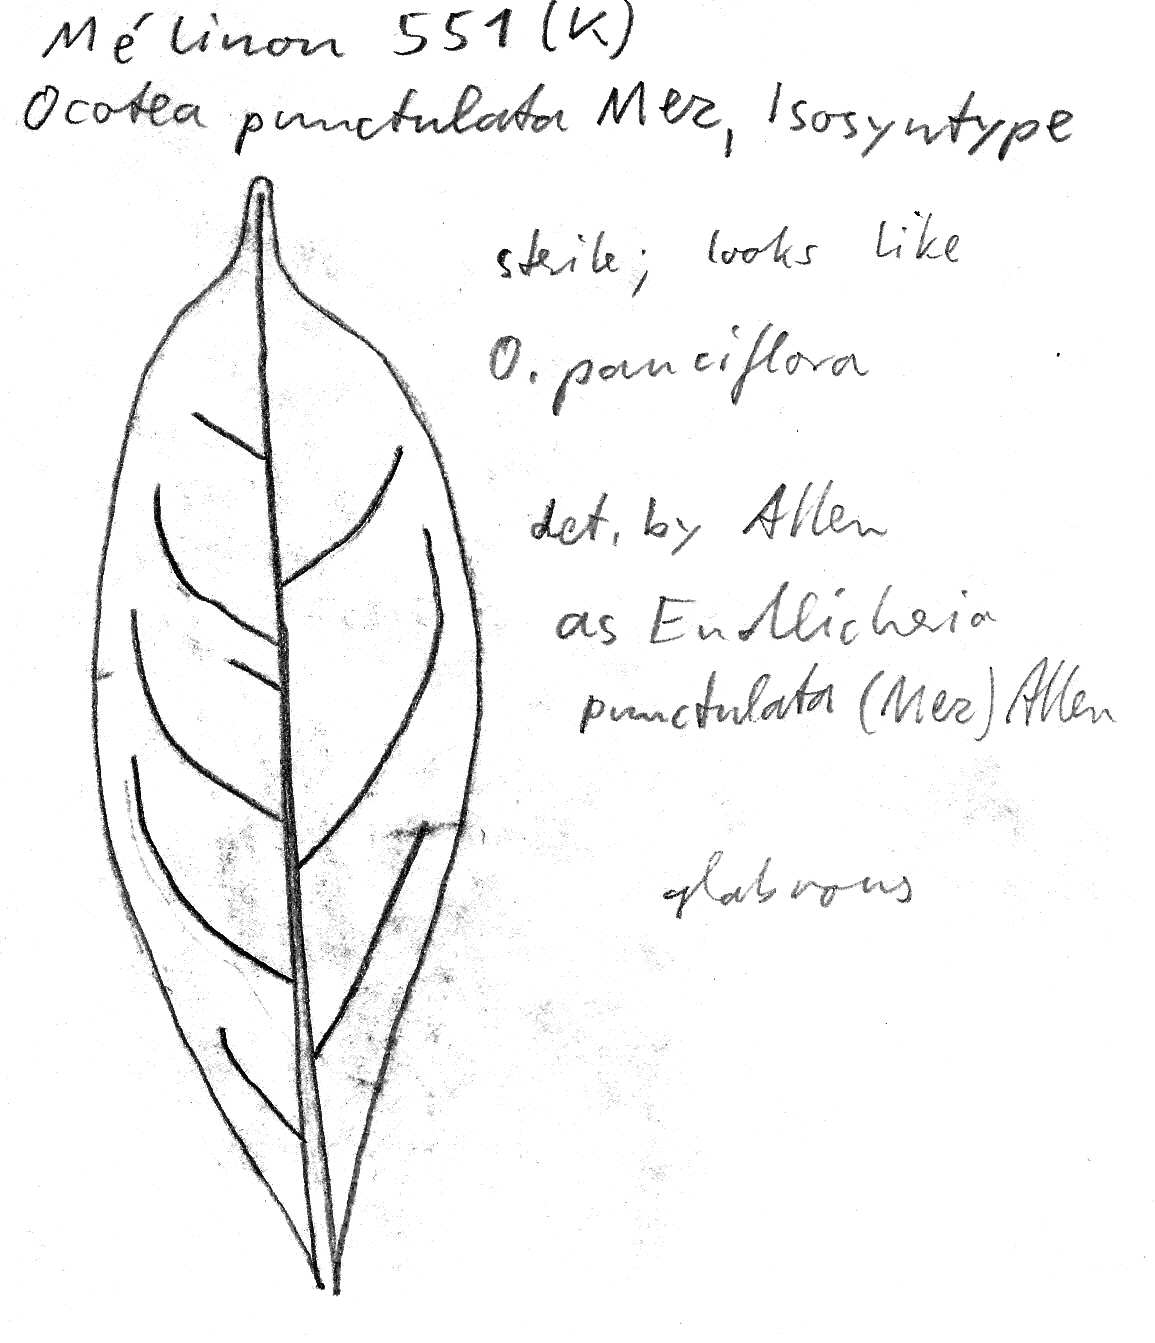 Mélinon 551 (K)
Ocotea punctulata Mez, Isosyntype
sterile; looks like
O. pauciflora
det. by Allen
as Endlicheria
punctulata (Mez) Allen
glabrous